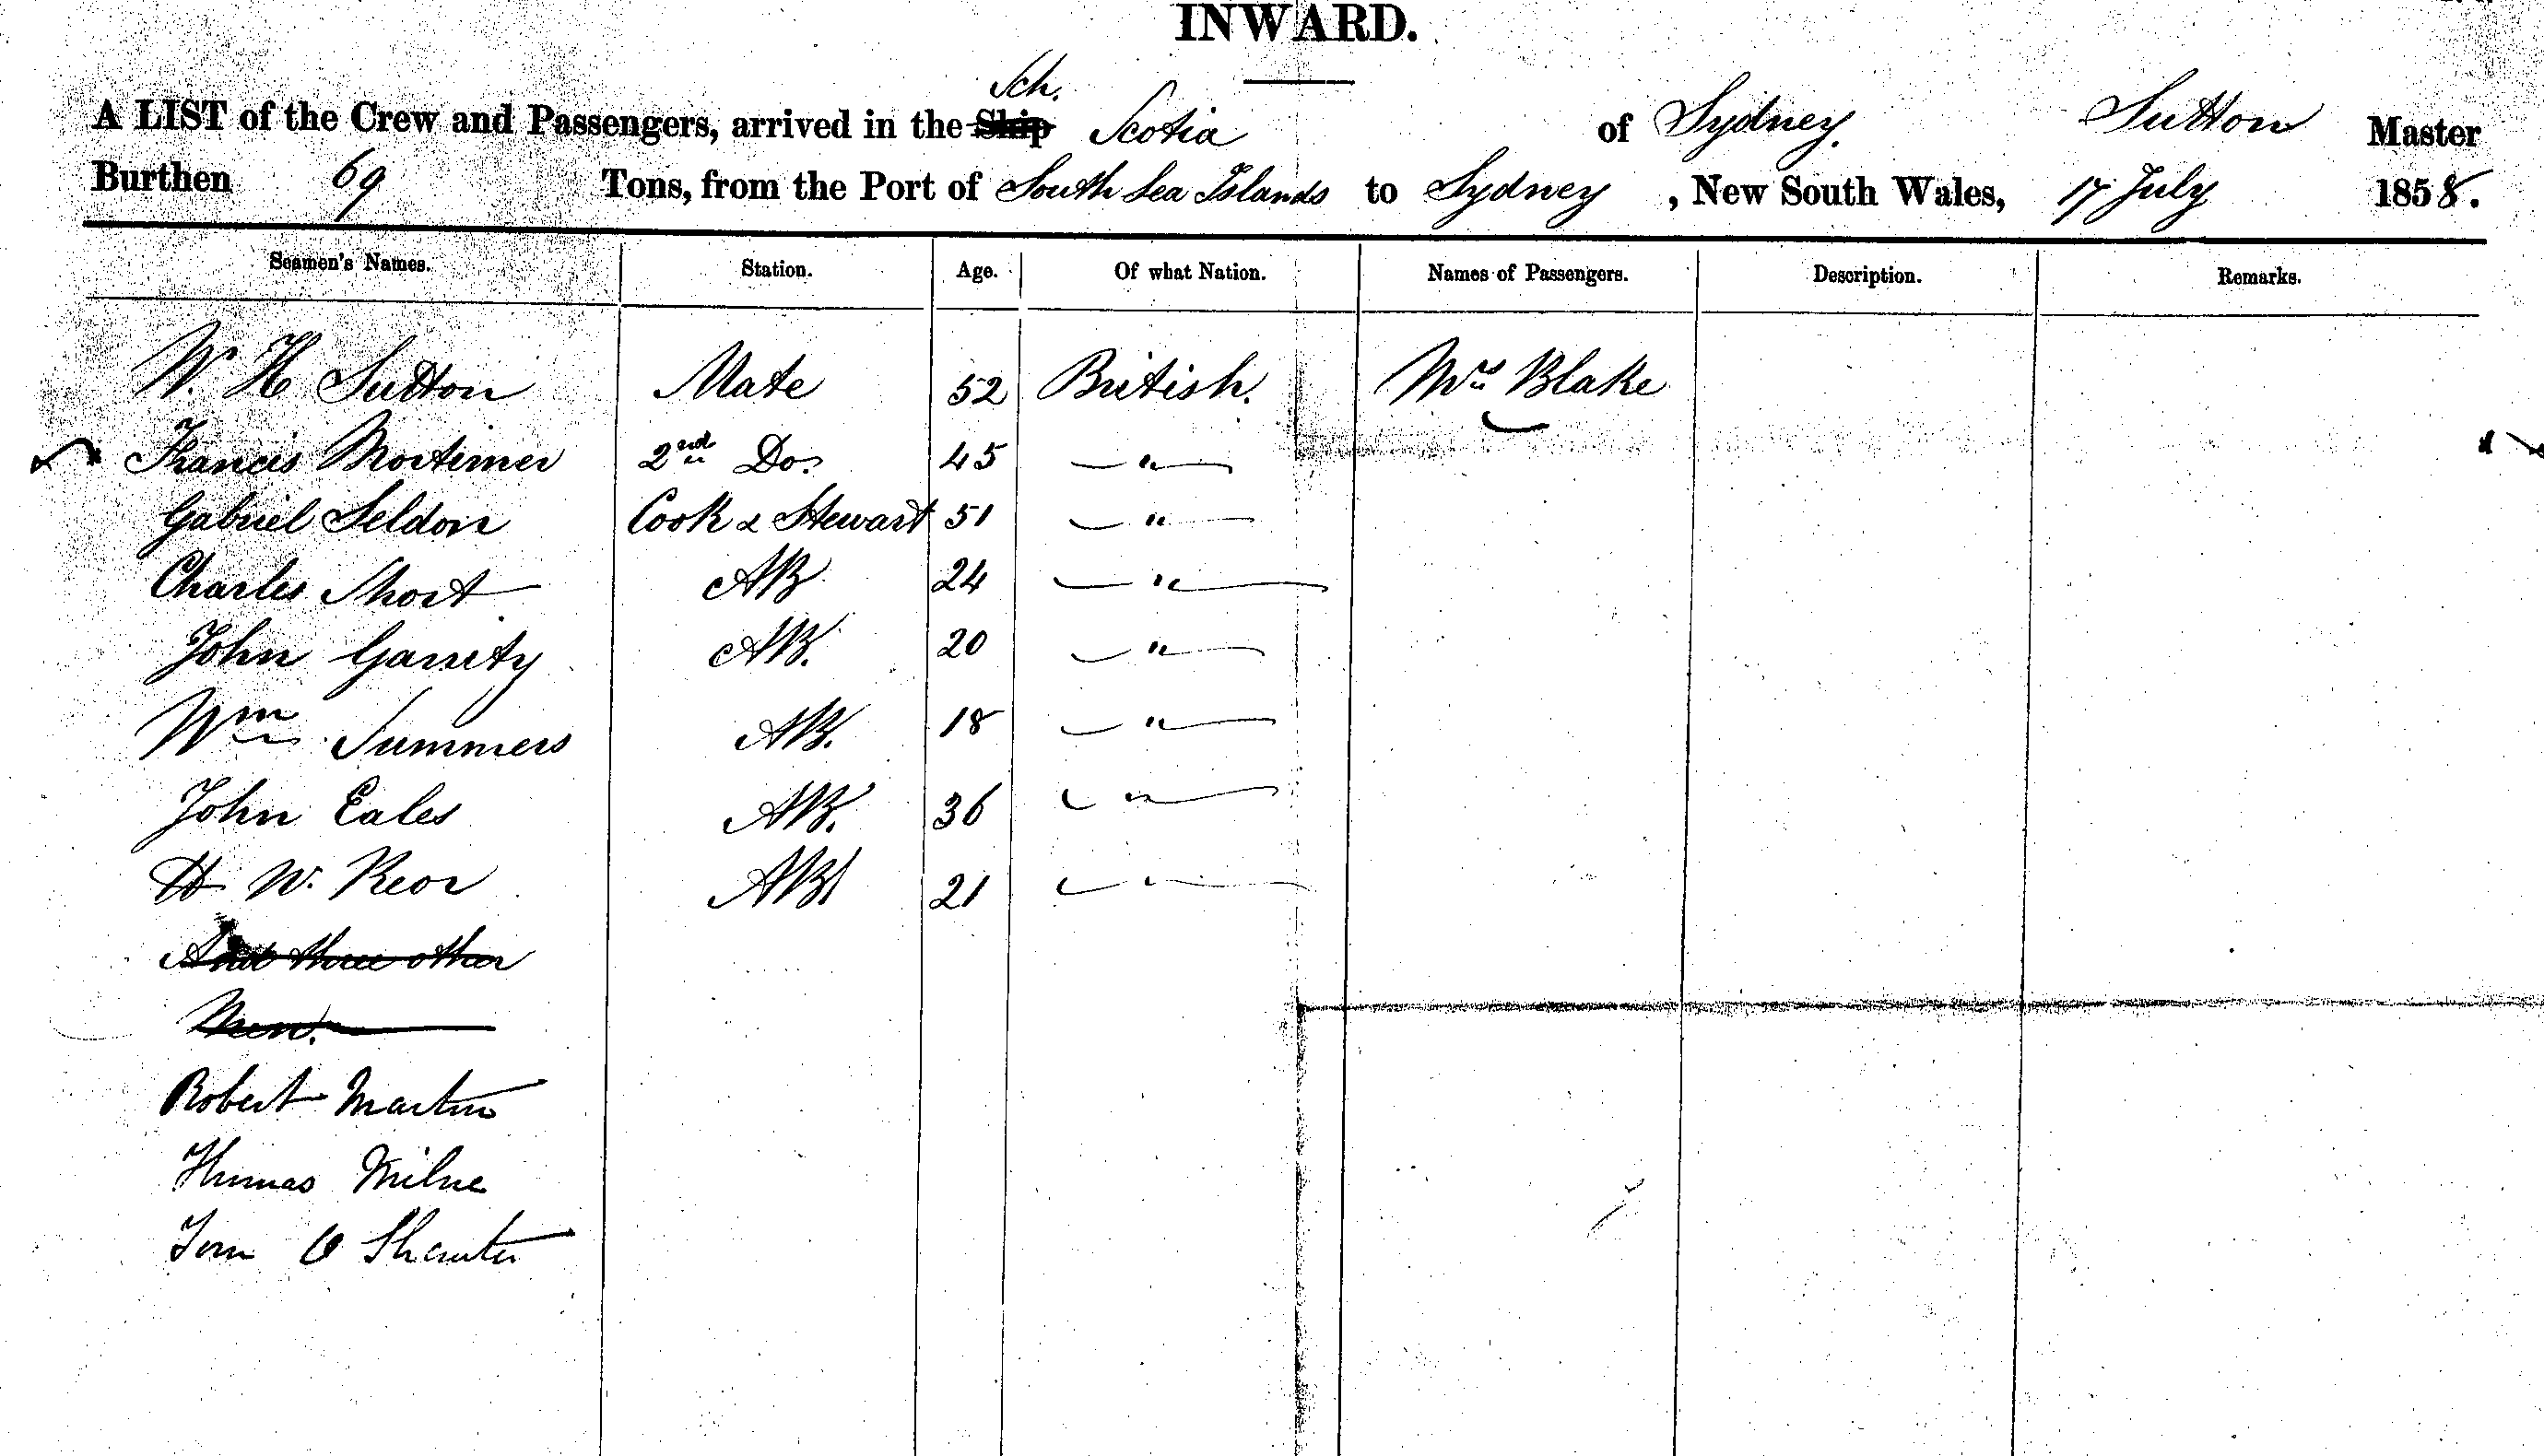 INWARD.
Sch.
A LIST of the Crew and Passengers, arrived in the Ship Scotia of Sydney. Sutton Master
Burthen 69 Tons, from the Port of South Sea Islands to Sydney, New South Wales, 17 July 1858.
Seamen's Names. Station. Age. Of what Nation. Names of Passengers. Description. Remarks.
W. H Sutton Mate 52 British. Mrs Blake
Francis Mortimer 2nd Do. 45 — " —
Gabriel Seldon Cook & Stewart 51 — " —
Charles Short AB 24 — " —
John Garrity AB. 20 — " —
Wm Summers AB. 18 — " —
John Eales AB. 36 — " —
H W. Keor AB 21 — " —
And three other
Men.
Robert Martin
Thomas Milne
Tom O Shanter